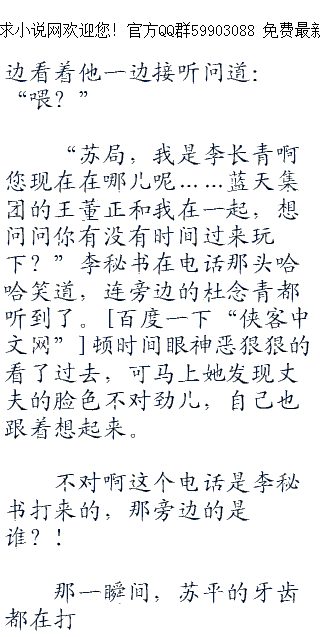 求小说网欢迎您! 官方QQ群59903088 免费最新
边看着他一边接听问道:
“喂?”
“苏局, 我是李长青啊
您现在在哪儿呢……蓝天集
团的王董正和我在一起, 想
问问你有没有时间过来玩
下?” 李秘书在电话那头哈
哈笑道, 连旁边的杜念青都
听到了。[百度一下“侠客中
文网”]顿时间眼神恶狠狠的
看了过去, 可马上她发现丈
夫的脸色不对劲儿, 自己也
跟着想起来。
不对啊这个电话是李秘
书打来的, 那旁边的是
谁?!
那一瞬间, 苏平的牙齿
都在打